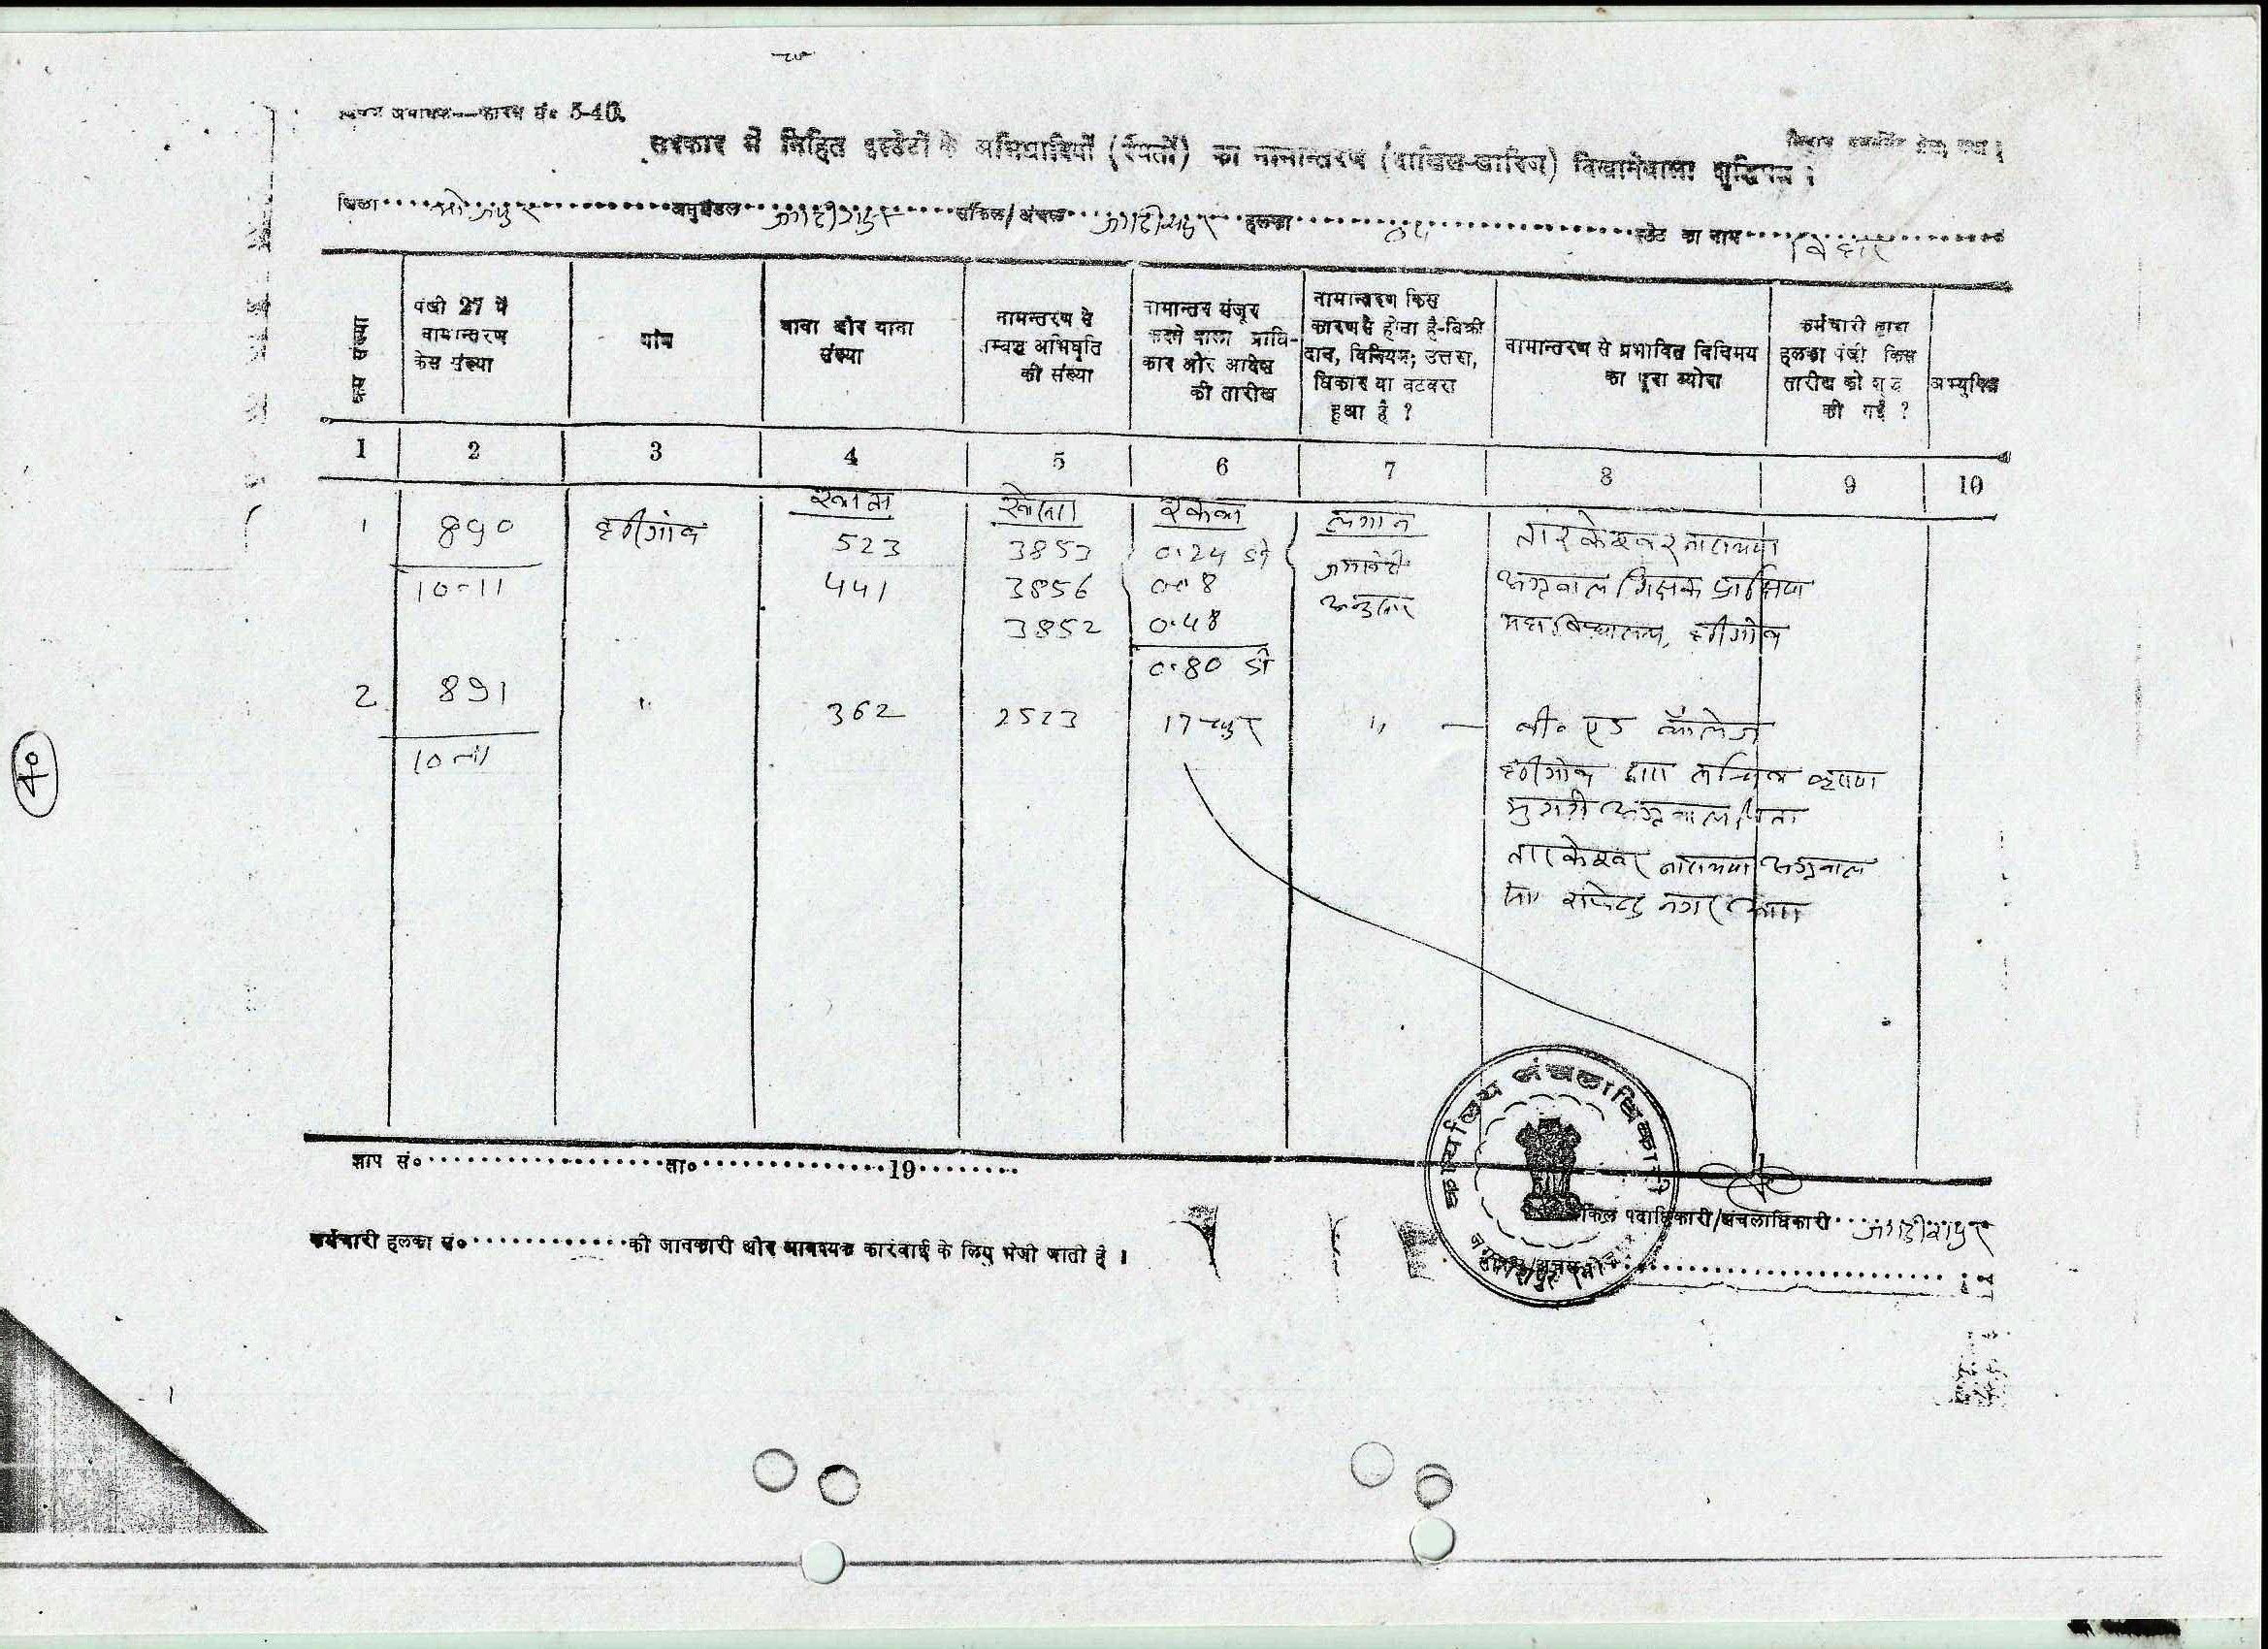 फारम सं० 5-40.
सरकार में निहित इस्टेटों के अभिधारियों (रैयतों) का नामान्तरण (दाखिल-खारिज) दिखानेवाला शुद्धिपत्र ।
जिला भोजपुर अनुमंडल जगदीशपुर सर्किल/अंचल जगदीशपुर हलका स्टेट का नाम बिहार
क्रम संख्या
पंजी 27 में नामान्तरण केस संख्या
गांव
थाना और थाना संख्या
नामन्तरण से सम्बद्ध अभिधृति की संख्या
नामान्तर मंजूर करने वाला प्राधिकार और आदेश की तारीख
नामान्तरण किस कारणसे होता है-बिक्री दान, विनिमय; उत्तरा, धिकार या बटवरा हुआ है ?
नामान्तरण से प्रभावित विनिमय का पूरा ब्योरा
कर्मचारी द्वारा हलका पंजी किस तारीख को शुद्ध की गई ?
अभ्युक्ति
1 2 3 4 5 6 7 8 9 10
खाता खेसरा रकबा लगान
1 890 हरीगांव 523 3853 0.24 डी तारकेश्वर नारायण
10-11 441 3856 0.08 जमाबंदी अग्रवाल शिक्षक प्रशिक्षण
3852 0.48 अनुसार महाविद्यालय, हरीगांव
0.80 डी
2 891 " 362 2523 17 " — बी० एड कॉलेज
10-11 हरीगांव द्वारा सचिव कृष्णा
मुरारी अग्रवाल पिता
तारकेश्वर नारायण अग्रवाल
सा० राजेन्द्र नगर आरा
ज्ञाप सं० ता० 19
सर्किल पदाधिकारी/अंचलाधिकारी जगदीशपुर
कर्मचारी हलका सं० की जानकारी और आवश्यक कारंवाई के लिए भेजी जाती है ।
कार्यालय अंचलाधिकारी
जगदीशपुर
40